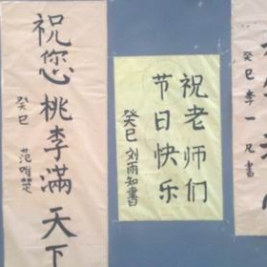 祝您桃李满天下
癸巳
祝老师们
节日快乐
癸巳 刘雨知書
癸巳 李一
書